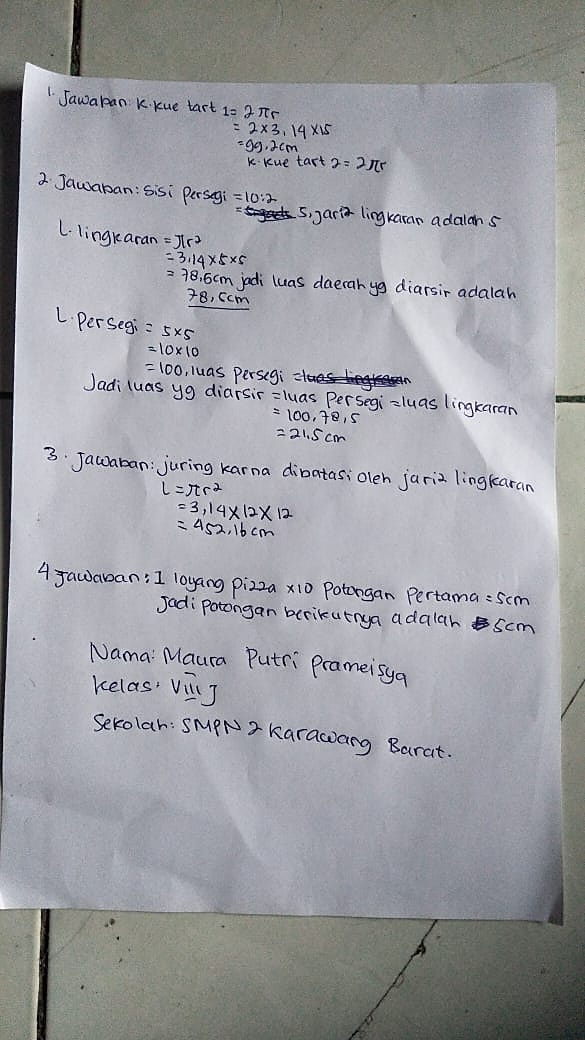 1. Jawaban: K. Kue tart 1 = 2πr
= 2 x 3,14 x 15
= 99,2cm
K. Kue tart 2 = 2πr
2. Jawaban: Sisi Persegi = 10:2
= 5, jari2 lingkaran adalah 5
L. lingkaran = πr²
= 3,14 x 5 x 5
= 78,5cm jadi luas daerah yg diarsir adalah
78,5cm
L. Persegi = 5x5
= 10x10
= 100, luas Persegi = luas lingkaran
Jadi luas yg diarsir = luas Persegi = luas lingkaran
= 100,78,5
= 21,5cm
3. Jawaban: juring karna dibatasi oleh jari2 lingkaran
L = πr²
= 3,14 X 12 X 12
= 452,16 cm
4 Jawaban: 1 loyang pizza x10 Potongan Pertama = 5cm
Jadi potongan berikutnya adalah 5cm
Nama: Maura Putri Prameisya
Kelas: VIII J
Sekolah: SMPN 2 Karawang Barat.